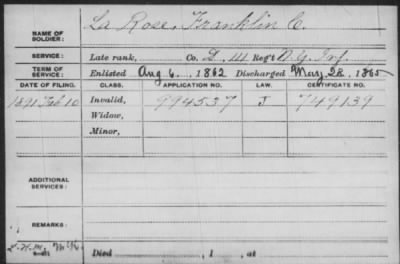 NAME OF SOLDIER: La Rose, Franklin C.
SERVICE: Late rank, Co. D, 114 Reg't N.Y. Inf.
TERM OF SERVICE: Enlisted Aug 6, 1862 Discharged May 28, 1865
DATE OF FILING. CLASS. APPLICATION NO. LAW. CERTIFICATE NO.
1891 Feb 10 Invalid, 994537 J 749139
Widow,
Minor,
ADDITIONAL SERVICES:
REMARKS:
Died , 1 , at